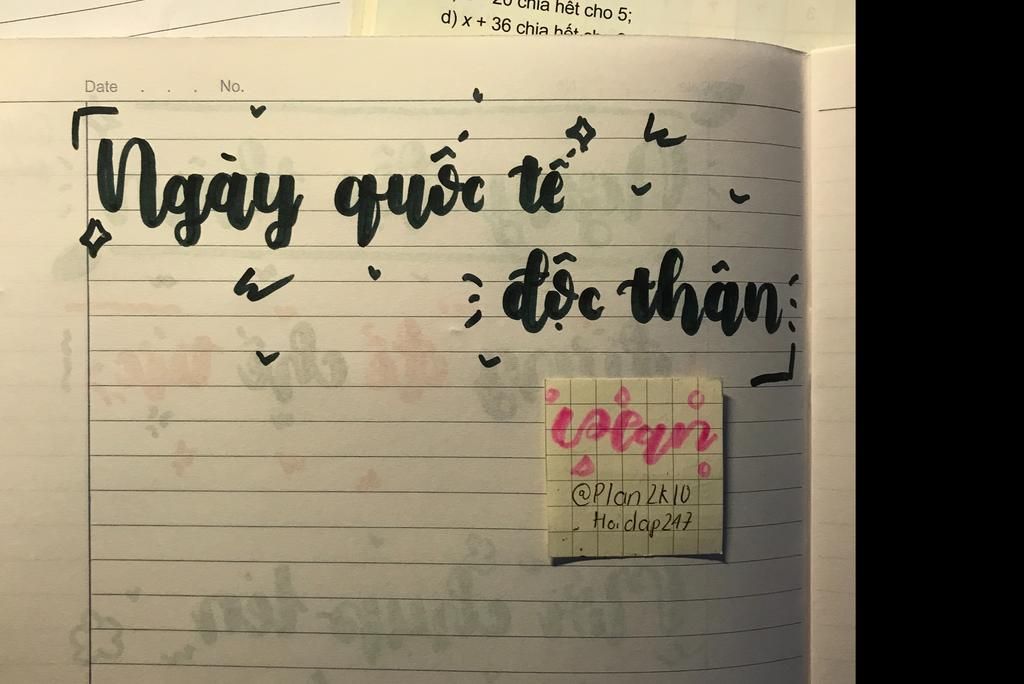 20 chia hết cho 5;
d) x + 36 chia hết cho
Date . . . No.
Ngày quốc tế
độc thân
@Plan2k10
Hoidap247